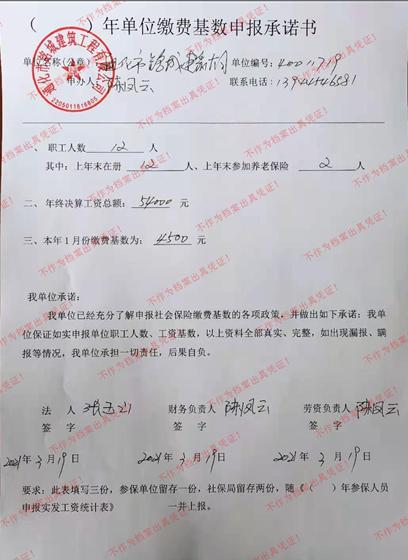 （ ）年单位缴费基数申报承诺书
单位名称（公章）： 单位编号：
申办人：陈凤云 联系电话：13944546581
通化市铭城建筑工程有限公司
2205011616805
一、 职工人数 12 人
其中：上年末在册 12 人、上年末参加养老保险 2 人
二、 年终决算工资总额： 54000 元
三、本年1月份缴费基数为： 4500 元
我单位承诺：
我单位已经充分了解申报社会保险缴费基数的各项政策，并做出如下承诺：我单
位保证如实申报单位职工人数、工资基数，以上资料全部真实、完整，如出现漏报、瞒
报等情况，我单位承担一切责任，后果自负。
法 人 财务负责人 陈凤云 劳资负责人 陈凤云
签 字 签 字 签 字
2021年3月19日 2021年3月19日 2021年3月19日
要求：此表填写三份，参保单位留存一份，社保局留存两份，随《（ ）年参保人员
申报实发工资统计表》 一并上报。
不作为档案出具凭证！